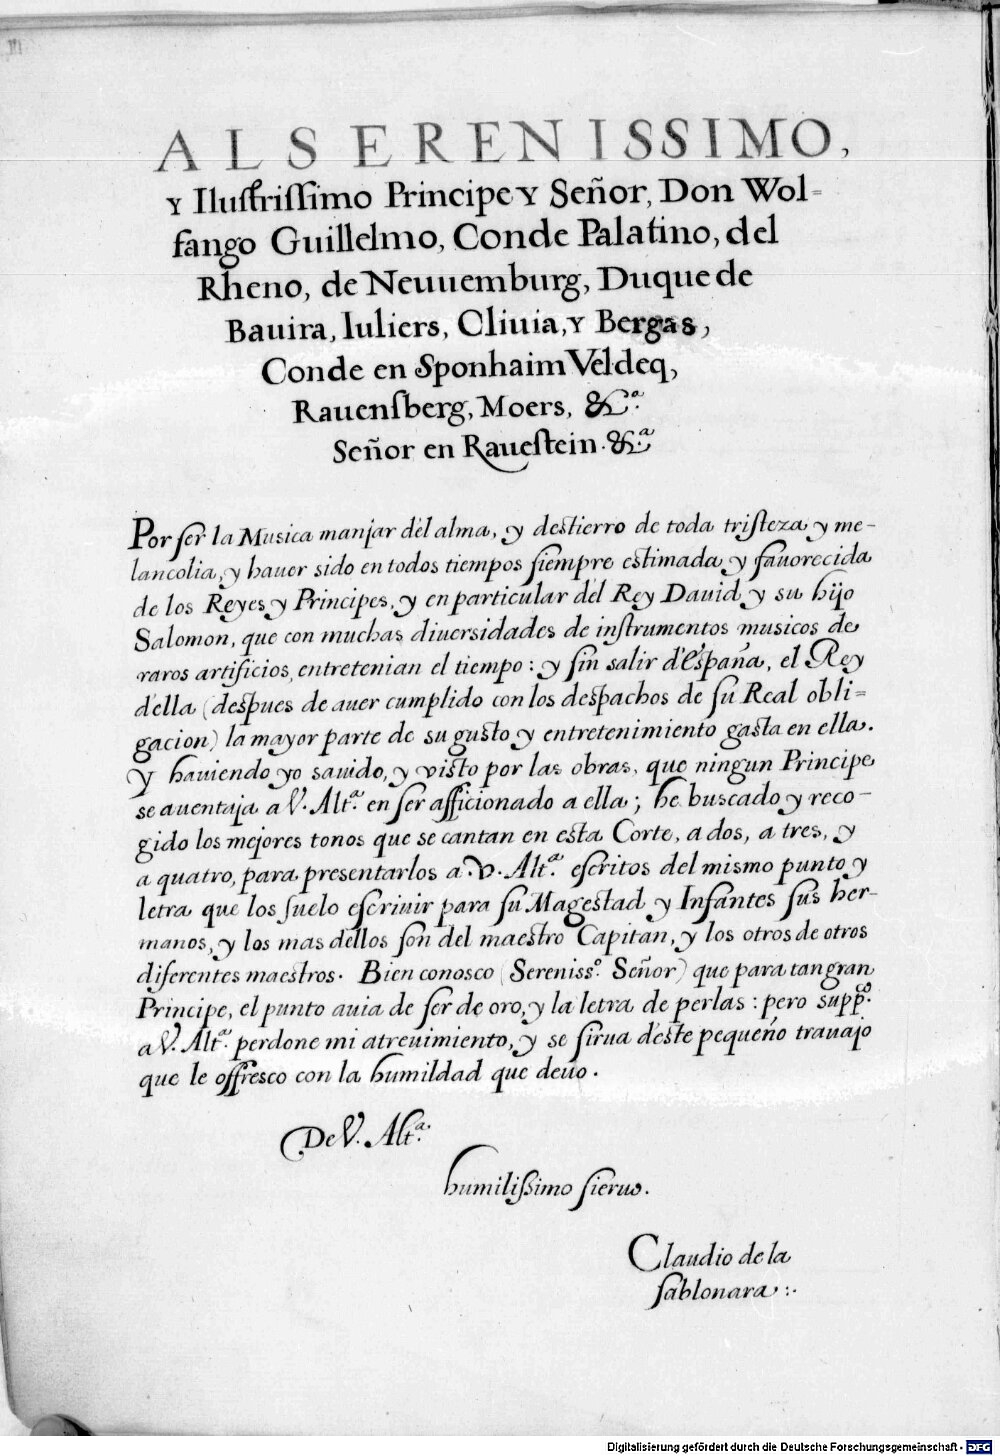 AL SERENISSIMO,
Y Iluſtriſſimo Principe Y Señor, Don Wol=
fango Guillelmo, Conde Palatino, del
Rheno, de Neuuemburg, Duque de
Bauira, Iuliers, Cliuia, Y Bergas,
Conde en Sponhaim Veldeq,
Rauenſberg, Moers, &cª.
Señor en Raueſtein. &ª
Por ſer la Musica manjar del alma, y destierro de toda triſteza y me-
lancolia, y hauer sido en todos tiempos ſiempre estimada y fauorecida
de los Reyes y Principes, y en particular del Rey Dauid y su hijo
Salomon, que con muchas diuersidades de inſtrumentos musicos de
raros artificios, entretenian el tiempo: y ſin salir d'España, el Rey
d'ella (despues de auer cumplido con los despachos de ſu Real obli=
gacion) la mayor parte de su gusto y entretenimiento gasta en ella.
Y hauiendo yo sauido, y visto por las obras, que ningun Principe
se auentaja a V. Altª. en ſer afficionado a ella; he buscado y reco-
gido los mejores tonos que se cantan en esta Corte, a dos, a tres, y
a quatro, para presentarlos a V. Altª. eſcritos del mismo punto y
letra que los ſuelo eſcriuir para ſu Magestad y Infantes ſus her-
manos, y los mas dellos ſon del maestro Capitan, y los otros de otros
diferentes maestros. Bien conosco (Serenissº. Señor) que para tan gran
Principe, el punto auia de ſer de oro, y la letra de perlas: pero suppᶜᵒ.
a V. Altª. perdone mi atreuimiento, y se ſirua d'este pequeño trauajo
que le offresco con la humildad que deuo.
De V. Altª.
humiliſsimo ſieruo.
Claudio de la
ſablonara :.
Digitalisierung gefördert durch die Deutsche Forschungsgemeinschaft - DFG